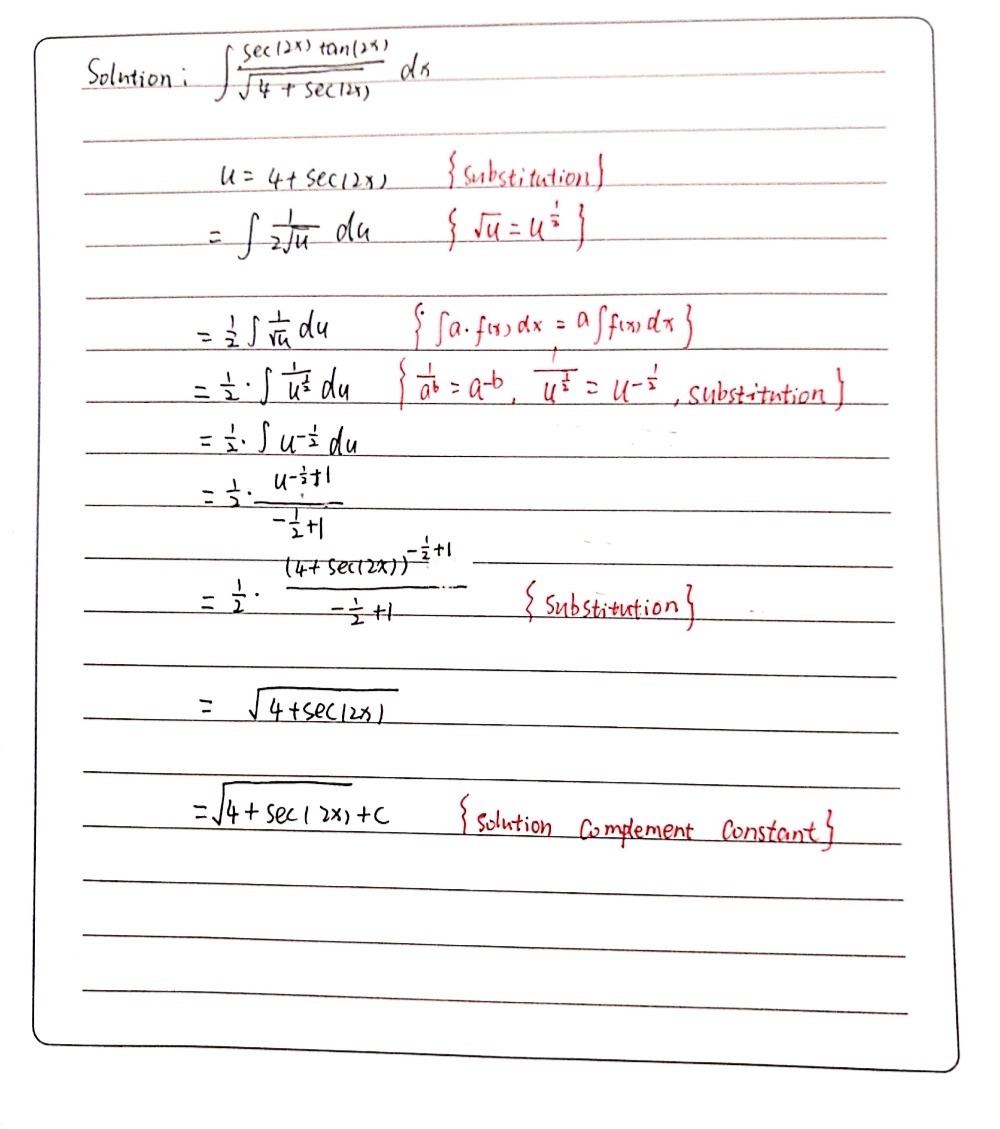 Solution: ∫ sec(2x) tan(2x) / √(4 + sec(2x)) dx
u = 4 + sec(2x) {substitution}
= ∫ 1/(2√u) du { √u = u^(1/2) }
= 1/2 ∫ 1/√u du { ∫a·f(x) dx = a∫f(x) dx }
= 1/2 · ∫ 1/u^(1/2) du { 1/a^b = a^-b, 1/u^(1/2) = u^(-1/2), substitution }
= 1/2 · ∫ u^(-1/2) du
= 1/2 · u^(-1/2+1) / (-1/2+1)
= 1/2 · (4 + sec(2x))^(-1/2+1) / (-1/2+1) {substitution}
= √(4+sec(2x))
= √(4+sec(2x)) + C {solution complement constant}